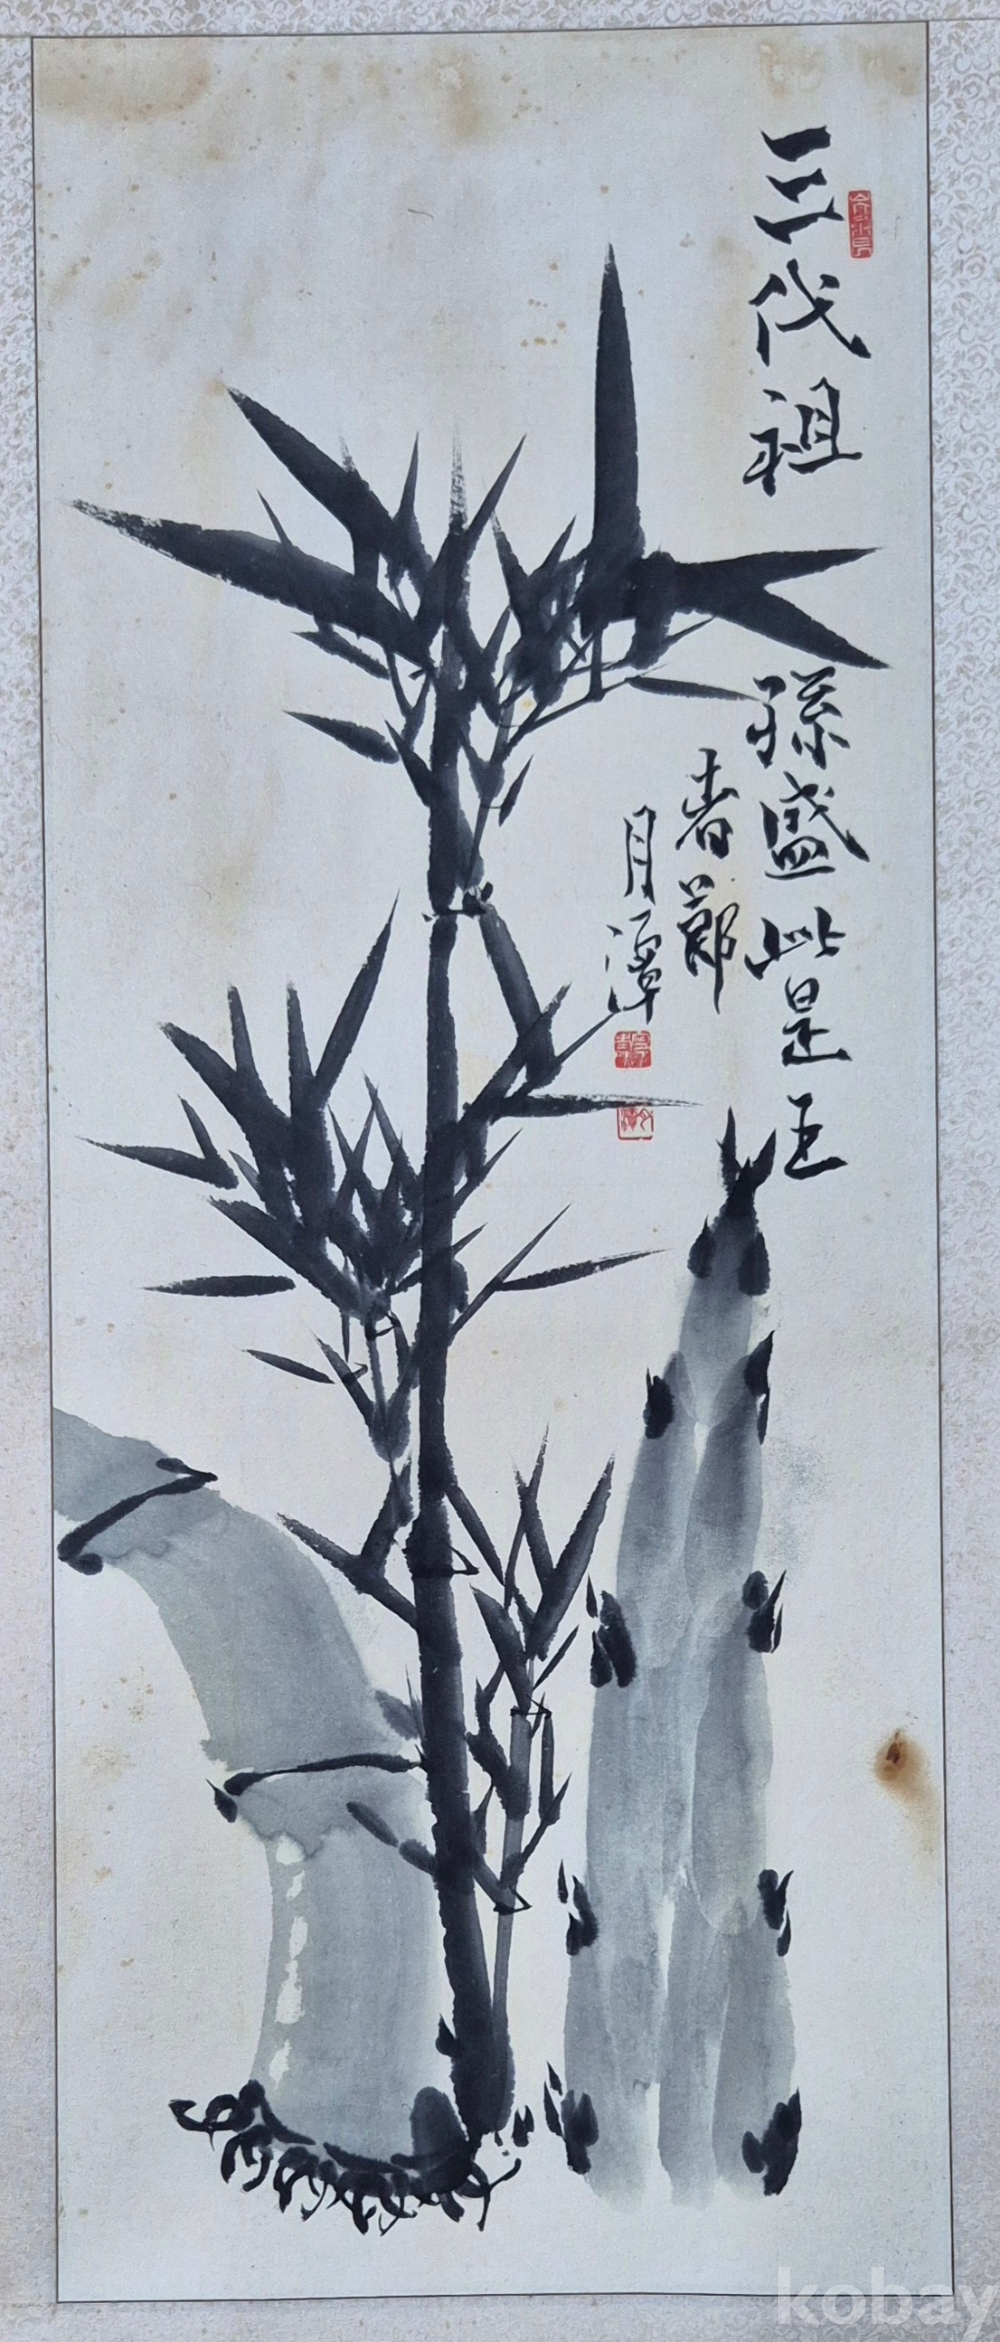 三代祖孫盛此是王
春節
月潭
kobay